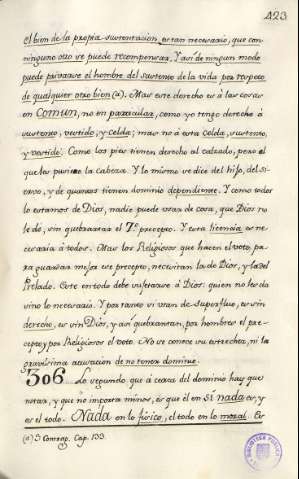 423
el bien de la propia sustentacion, es tan necesario, que con
ninguno otro se puede recompensar. Y asi de ningun modo
puede privarse el hombre del sustento de la vida por respeto
de qualquier otro bien (a). Mas este derecho es à las cosas
en COMUN, no en particular, como yo tengo derecho à
sustento, vestido, y celda; mas no à esta celda, sustento,
y vestido. Como los pies tienen derecho al calzado, pero el
que las pone la cabeza. Y lo mismo se dice del hijo, del si-
ervo, y de quantos tienen dominio dependiente. Y como todos
lo estamos de Dios, nadie puede usar de cosa, que Dios no
le dè, sin quebrantar el 7º precepto. Y esta licencia es ne-
cesaria à todos. Mas los Religiosos que hacen el voto, pa-
ra guardar mejor ese precepto, necesitan la de Dios, y la del
Prelado. Este en todo debe sujetarse à Dios: quien no les da
sino lo necesario. Y por tanto si usan de superfluo, es sin
derecho, es sin Dios, y asi quebrantan, por hombres el pre-
cepto, y por Religiosos el voto. No se conoce su estrechez, ni la
gravisima acusacion de no tener dominio.
306. Lo segundo que à cerca del dominio hay que
notar, y que no importa menos, es que èl en si nada es, y
es el todo. Nada en lo fisico, el todo en lo moral. Es
(a) 3 Contrag. Cap. 133.
BIBLIOTECA PUBLICA